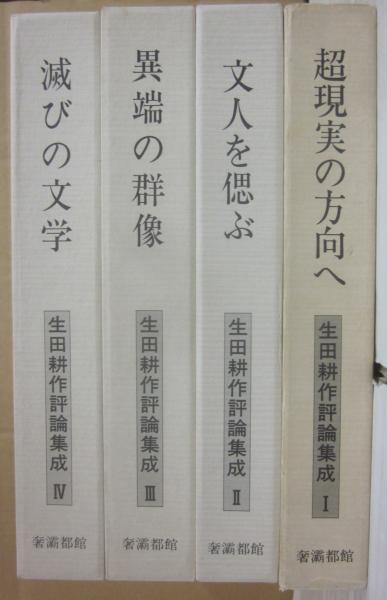 超現実の方向へ
生田耕作評論集成 Ⅰ
奢灞都館
文人を偲ぶ
生田耕作評論集成 Ⅱ
奢灞都館
異端の群像
生田耕作評論集成 Ⅲ
奢灞都館
滅びの文学
生田耕作評論集成 Ⅳ
奢灞都館